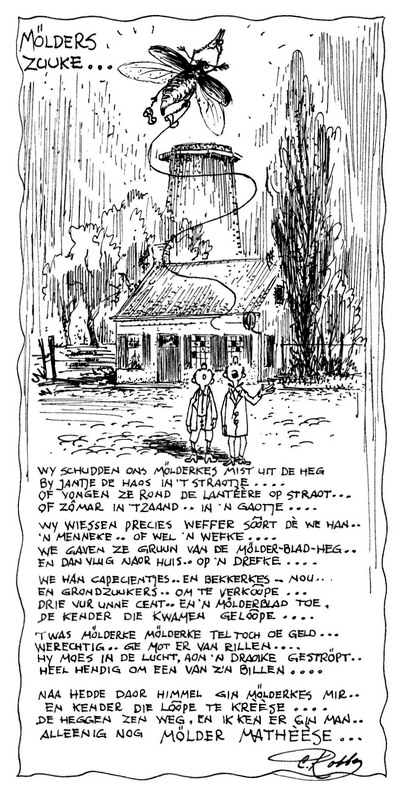 MÖLDERS
ZUUKE...
WY SCHUDDEN ONS MÖLDERKES MIST UIT DE HEG
BY JANTJE DE HAOS IN 'T STRAOTJE ....
OF VONGEN ZE ROND DE LANTEERE OP STRAOT...
OF ZÔMAR IN TZAAND.. IN 'N GAOTJE ....
WY WIESSEN PRECIES WEFFER SÔÔRT DÈ WE HAN..
'N MENNEKE.. OF WEL 'N WEFKE ....
WE GAVEN ZE GRUUN VAN DE MÖLDER-BLAD-HEG..
EN DAN VLUG NAOR HUIS.. OP 'N DREFKE ....
WE HAN CAPECIENTJES.. EN BEKKERKES.. NOU...
EN GRONDZUUKERS.. OM TE VERKÔÔPE ...
DRIE VUR UNNE CENT.. EN 'N MÖLDERBLAD TOE,
DE KENDER DIE KWAMEN GELÔÔPE ....
T WAS MÖLDERKE MÖLDERKE TEL TOCH OE GELD...
WERECHTIG.. GE MOT ER VAN RILLEN....
HY MOES IN DE LUCHT, AON 'N DRAOIKE GESTRÖPT..
HEEL HENDIG OM EEN VAN Z'N BILLEN ....
NAA HEDDE DAOR HIMMEL GIN MÖLDERKES MIR..
EN KENDER DIE LÔÔPE TE KREESE ....
DE HEGGEN ZEN WEG, EN IK KEN ER GIN MAN..
ALLEENIG NOG MÖLDER MATHEESE ...